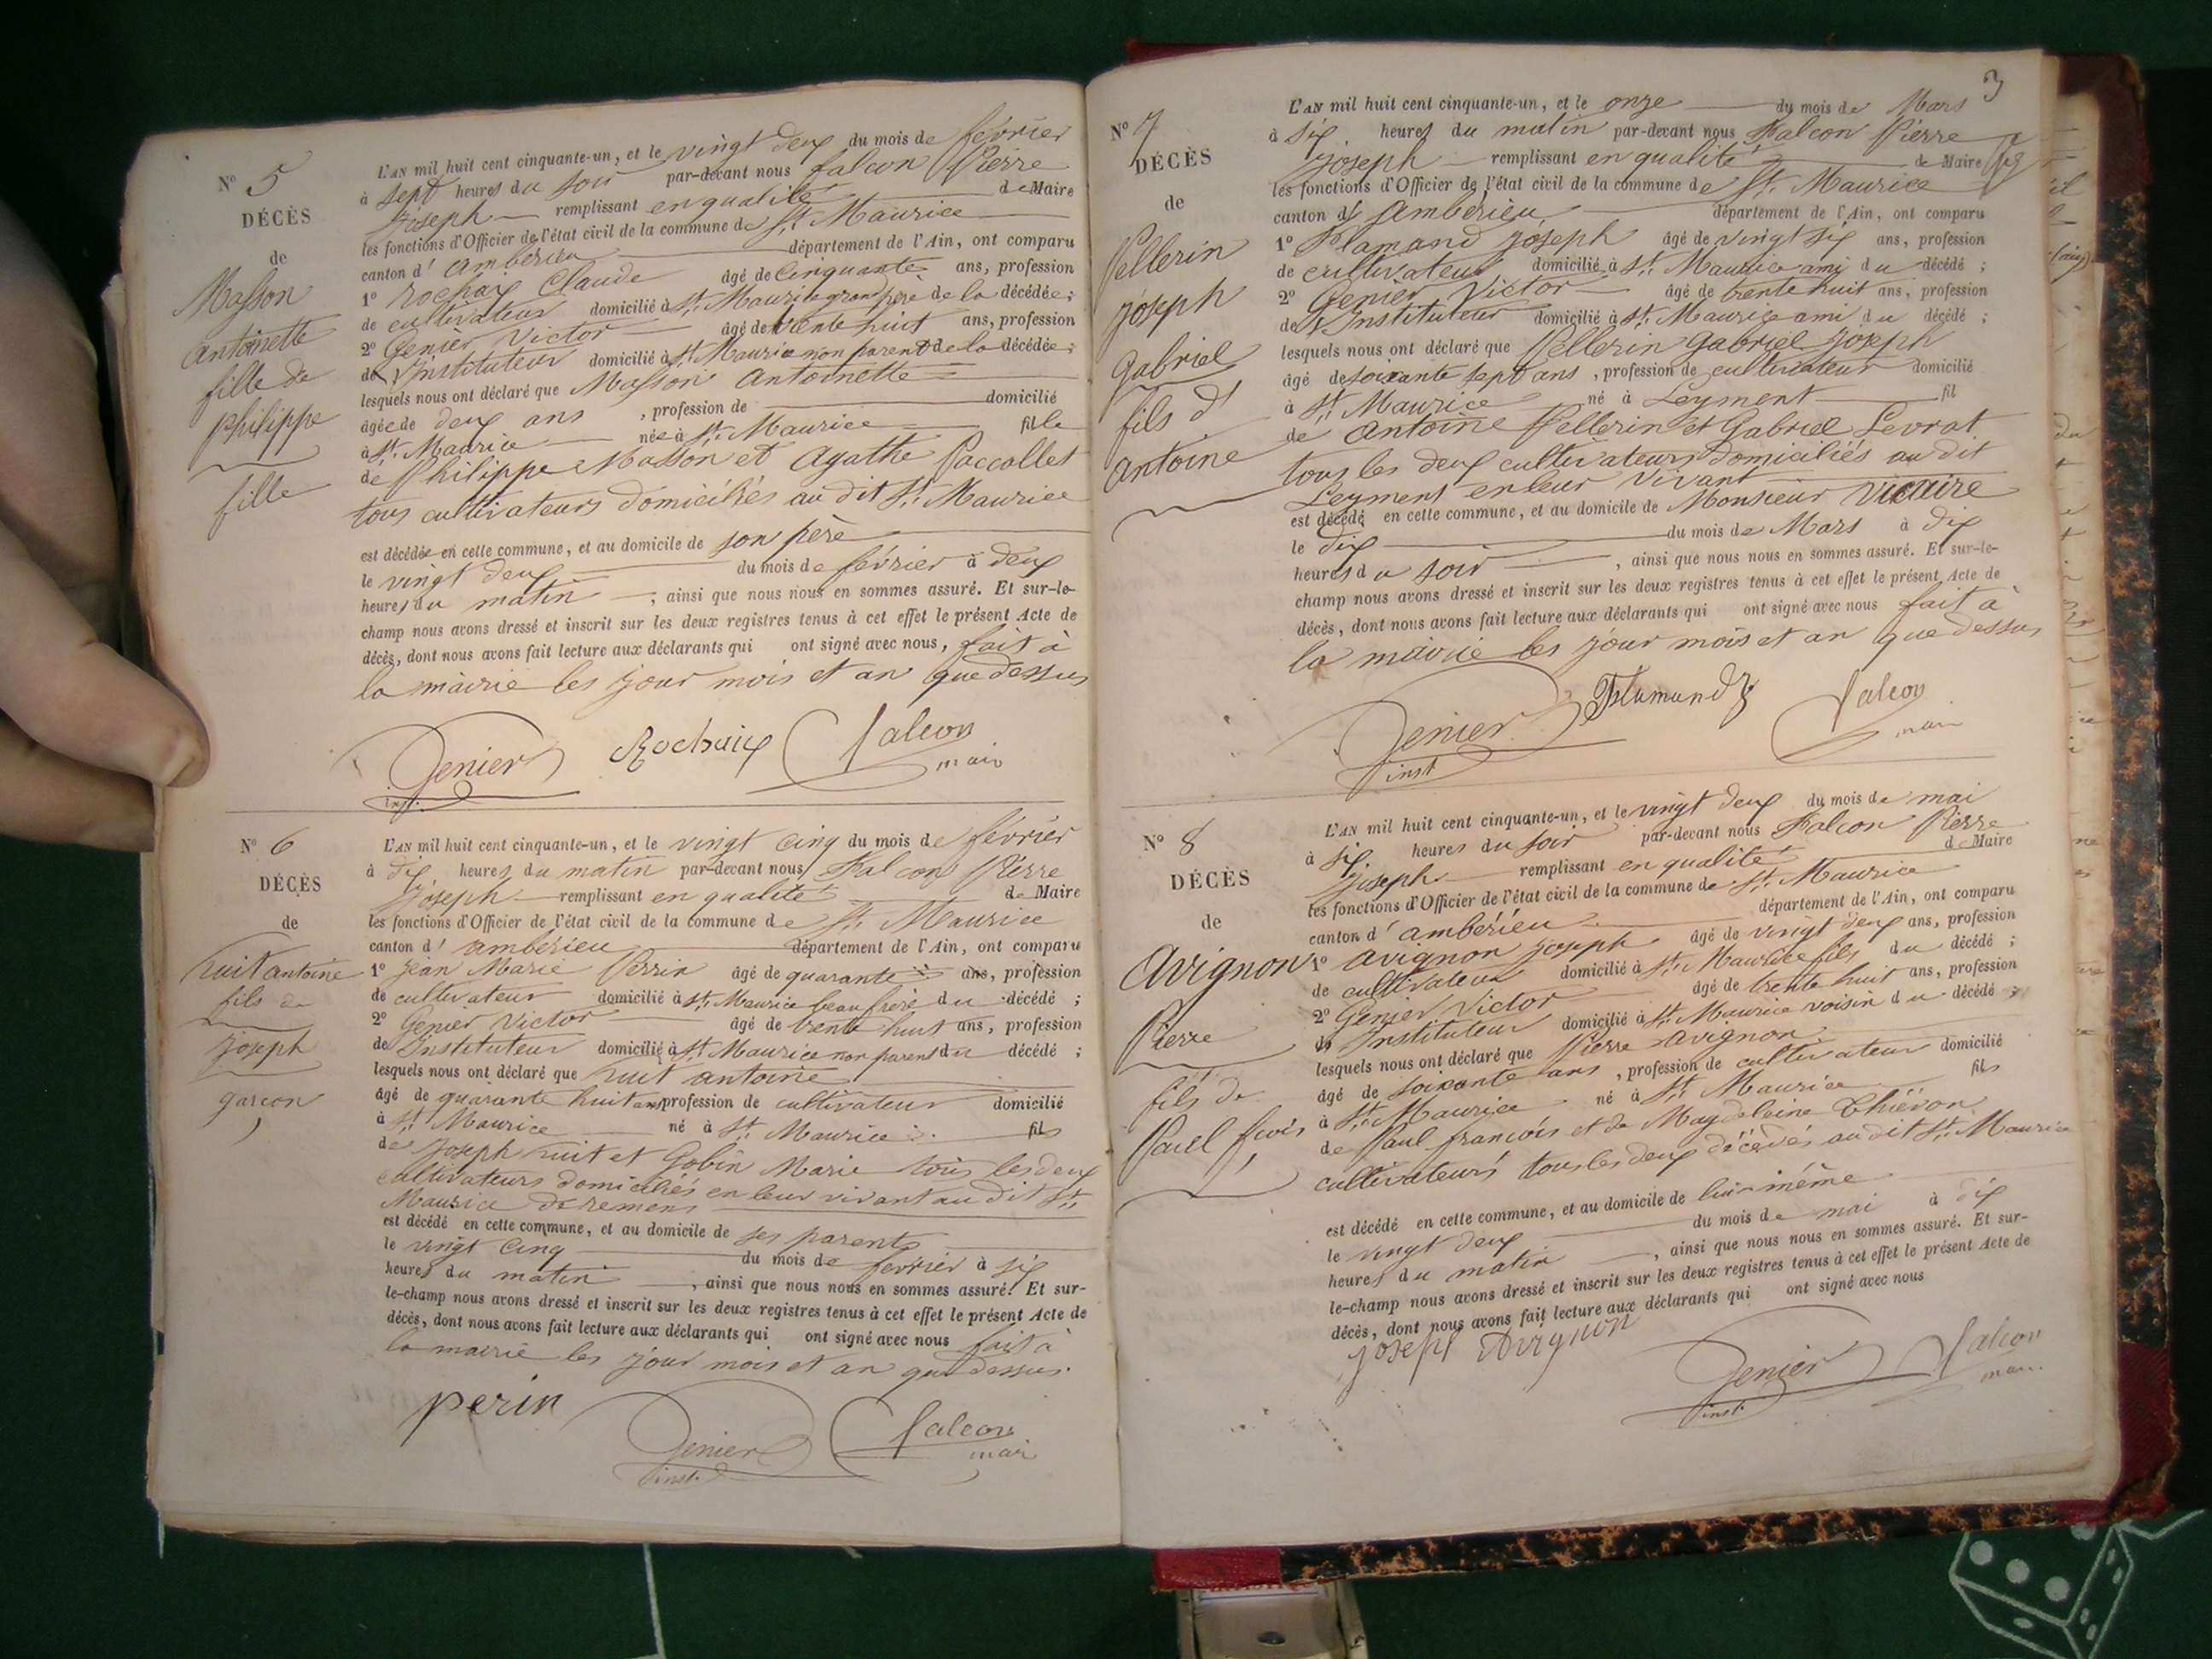 N° 5
DÉCÈS
de
Masson
antoinette
fille de
philippe
fille
L'AN mil huit cent cinquante-un, et le vingt deux du mois de février
à sept heures du soir par-devant nous falcon Pierre
Joseph remplissant en qualité de Maire
les fonctions d'Officier de l'état civil de la commune de St. Maurice
canton d' ambérieu département de l'Ain, ont comparu
1° Rochaix Claude âgé de Cinquante ans, profession
de cultivateur domicilié à St. Maurice grand père de la décédée;
2° Genier Victor âgé de trente huit ans, profession
d' Instituteur domicilié à St. Maurice non parent de la décédée;
lesquels nous ont déclaré que Masson antoinette
âgée de deux ans, profession de domicilié
à St. Maurice née à St. Maurice fille
de Philippe Masson et Agathe Paccollet
tous cultivateurs domiciliés au dit St. Maurice
est décédée en cette commune, et au domicile de son père
le vingt deux du mois de février à deux
heures du matin, ainsi que nous nous en sommes assuré. Et sur-le-
champ nous avons dressé et inscrit sur les deux registres tenus à cet effet le présent Acte de
décès, dont nous avons fait lecture aux déclarants qui ont signé avec nous, fait à
la mairie les jour mois et an que dessus
Genier Rochaix falcon
inst. mair
N° 6
DÉCÈS
de
nuit antoine
fils de
Joseph
garcon
L'AN mil huit cent cinquante-un, et le vingt cinq du mois de février
à dix heures du matin par-devant nous Falcon Pierre
Joseph remplissant en qualité de Maire
les fonctions d'Officier de l'état civil de la commune de St. Maurice
canton d' ambérieu département de l'Ain, ont comparu
1° Jean Marie Perrin âgé de quarante ans, profession
de cultivateur domicilié à St. Maurice beau frere du décédé;
2° Genier Victor âgé de trente huit ans, profession
de Instituteur domicilié à St. Maurice non parent du décédé;
lesquels nous ont déclaré que nuit antoine
âgé de quarante huit ans profession de cultivateur domicilié
à St. Maurice né à St. Maurice fils
de Joseph nuit et Gobin Marie tous les deux
cultivateurs domiciliés en leur vivant au dit St.
Maurice de remens
est décédé en cette commune, et au domicile de ses parents
le vingt cinq du mois de février à six
heures du matin, ainsi que nous nous en sommes assuré. Et sur-
le-champ nous avons dressé et inscrit sur les deux registres tenus à cet effet le présent Acte de
décès, dont nous avons fait lecture aux déclarants qui ont signé avec nous fait à
la mairie les jour mois et an que dessus.
perin
Genier falcon
inst. mair
3
N° 7
DÉCÈS
de
Pellerin
joseph
Gabriel
fils d'
antoine
L'AN mil huit cent cinquante-un, et le onze du mois de Mars
à six heures du matin par-devant nous Falcon Pierre
Joseph remplissant en qualité de Maire
les fonctions d'Officier de l'état civil de la commune de St. Maurice
canton d' ambérieu département de l'Ain, ont comparu
1° Flamand Joseph âgé de vingt six ans, profession
de cultivateur domicilié à St. Maurice ami du décédé;
2° Genier Victor âgé de trente huit ans, profession
de Instituteur domicilié à St. Maurice ami du décédé;
lesquels nous ont déclaré que Pellerin Gabriel Joseph
âgé de soixante sept ans, profession de cultivateur domicilié
à St. Maurice né à Leyment fil
de Antoine Pellerin et Gabriel Levrat
tous les deux cultivateurs domiciliés au dit
Leyment en leur vivant
est décédé en cette commune, et au domicile de Monsieur vicaire
le dix du mois de Mars à dix
heures du soir, ainsi que nous nous en sommes assuré. Et sur-le-
champ nous avons dressé et inscrit sur les deux registres tenus à cet effet le présent Acte de
décès, dont nous avons fait lecture aux déclarants qui ont signé avec nous fait à
la mairie les jour mois et an que dessus
Genier Flamand falcon
inst mair
N° 8
DÉCÈS
de
Avignon
Pierre
fils de
Paul fcois
L'AN mil huit cent cinquante-un, et le vingt deux du mois de mai
à six heures du soir par-devant nous Falcon Pierre
Joseph remplissant en qualité de Maire
les fonctions d'Officier de l'état civil de la commune de St. Maurice
canton d' ambérieu département de l'Ain, ont comparu
1° avignon joseph âgé de vingt deux ans, profession
de cultivateur domicilié à St. Maurice fils du décédé;
2° Genier Victor âgé de trente huit ans, profession
d' Instituteur domicilié à St. Maurice voisin du décédé;
lesquels nous ont déclaré que Pierre avignon
âgé de soixante ans, profession de cultivateur domicilié
à St. Maurice né à St. Maurice fils
de Paul françois et de Magdeleine Thiévon
cultivateurs tous les deux décédés au dit St. Maurice
est décédé en cette commune, et au domicile de lui-même
le vingt deux du mois de mai à dix
heures du matin, ainsi que nous nous en sommes assuré. Et sur-
le-champ nous avons dressé et inscrit sur les deux registres tenus à cet effet le présent Acte de
décès, dont nous avons fait lecture aux déclarants qui ont signé avec nous
joseph Avignon
Genier falcon
inst. mair